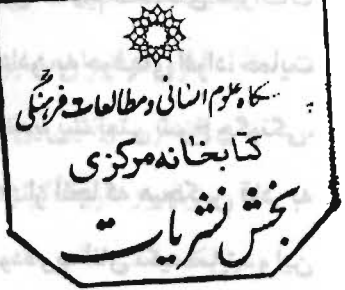 گاه علوم انسانی و مطالعات فرهنگی
کتابخانه مرکزی
بخش نشریات